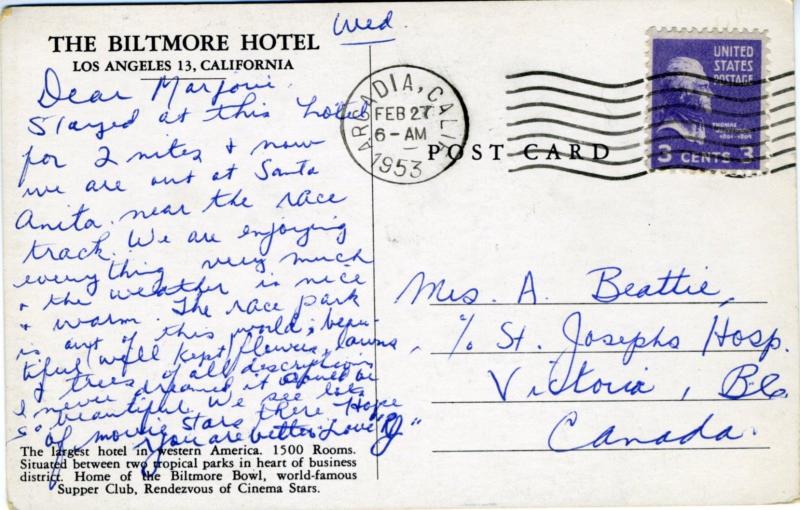 Wed
THE BILTMORE HOTEL
LOS ANGELES 13, CALIFORNIA
Dear Marjorie.
Stayed at this hotel
for 2 nites & now
we are out at Santa
Anita near the race
track. We are enjoying
everything very much
& the weather is nice
& warm. The race park
is out of this world; beau-
tiful well kept flowers, lawns
& trees of all description
I never dreamed it could be
so beautiful. We see lots
of movie stars there. Hope
you are better. Love
The largest hotel in western America. 1500 Rooms.
Situated between two tropical parks in heart of business
district. Home of the Biltmore Bowl, world-famous
Supper Club, Rendezvous of Cinema Stars.
ARCADIA, CALIF
FEB 27
6-AM
1953
POST CARD
UNITED
STATES
POSTAGE
THOMAS
3 CENTS 3
Mrs. A. Beattie,
% St. Josephs Hosp.
Victoria, B.C.
Canada.